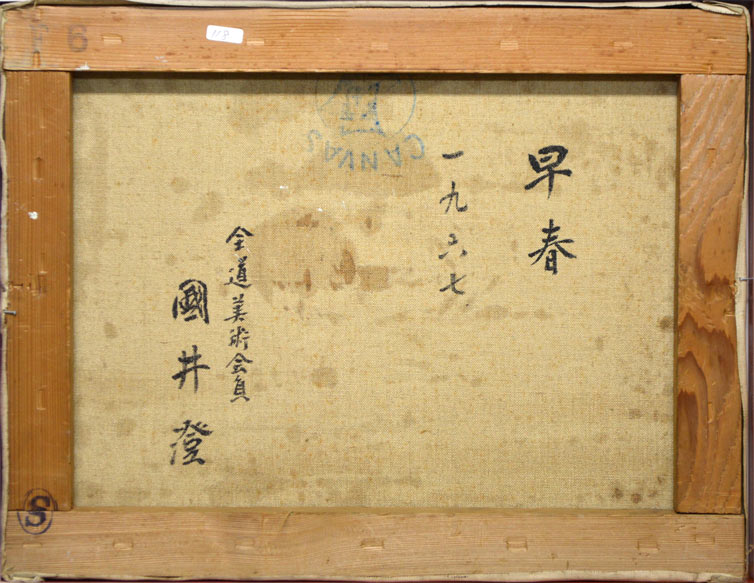 早春
一九六七
全道美術会員
國井澄
CANVAS
F6
118
S